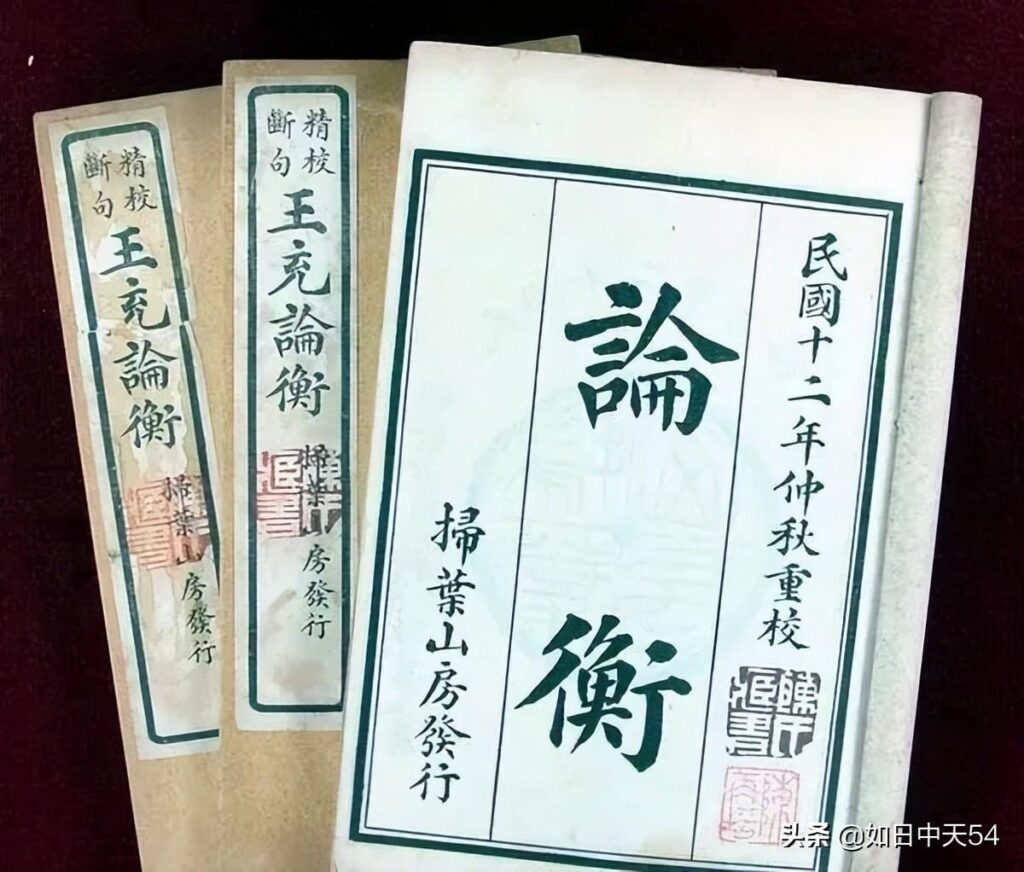 民國十二年仲秋重校
論衡
掃葉山房發行
精校
斷句
王充論衡
掃葉山房發行
精校
斷句
王充論衡
掃葉山房發行
头条 @如日中天54